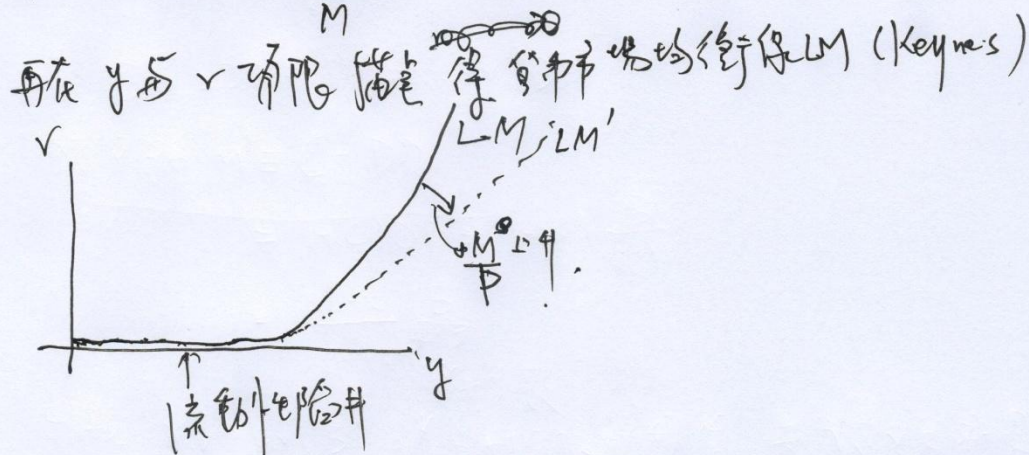 M
再在 y 与 r 得 貨幣市場均衡線LM (Keynes)
r
LM LM'
M
P 上升.
y
流動性陷井